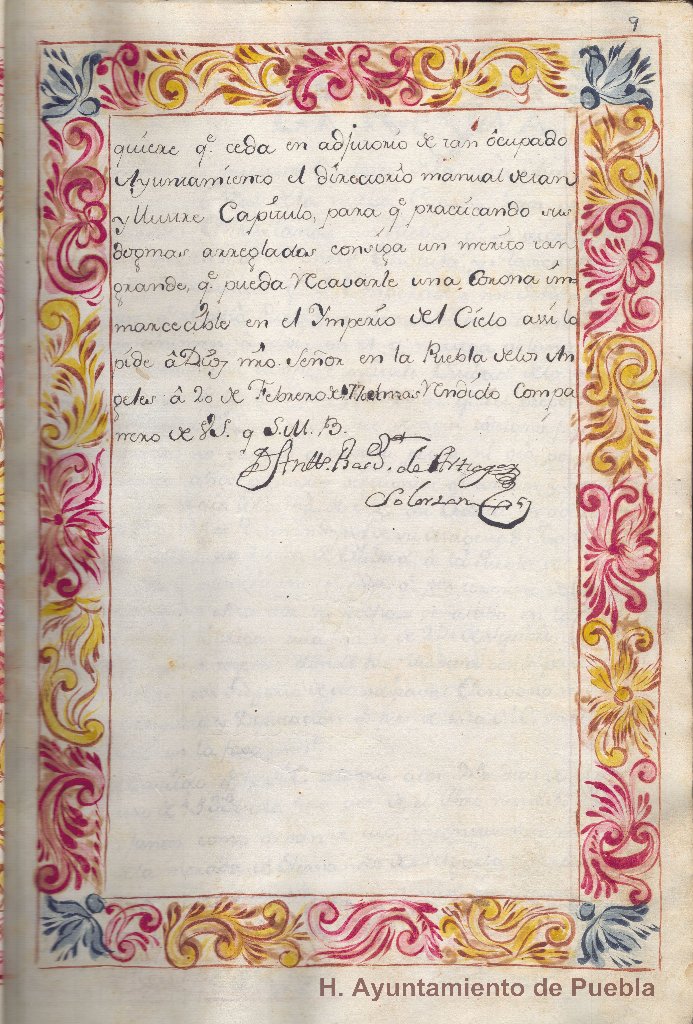 9
quiere q.e ceda en adjutorio de tan ôcupado
Ayuntamiento el directorio manual de tan
Yllustre Capitulo, para q.e practicando sus
dogmas arreglados consiga un merito tan
grande, q.e pueda recavarle una Corona im=
marcecible en el Ymperio del Cielo assi lo
pide â Dios nro. Señor en la Puebla de los An
geles â 20 de Febrero de mas Rendido Compa
nero de V.S. q S. M. B.
de Arteaga
Solorzano
H. Ayuntamiento de Puebla